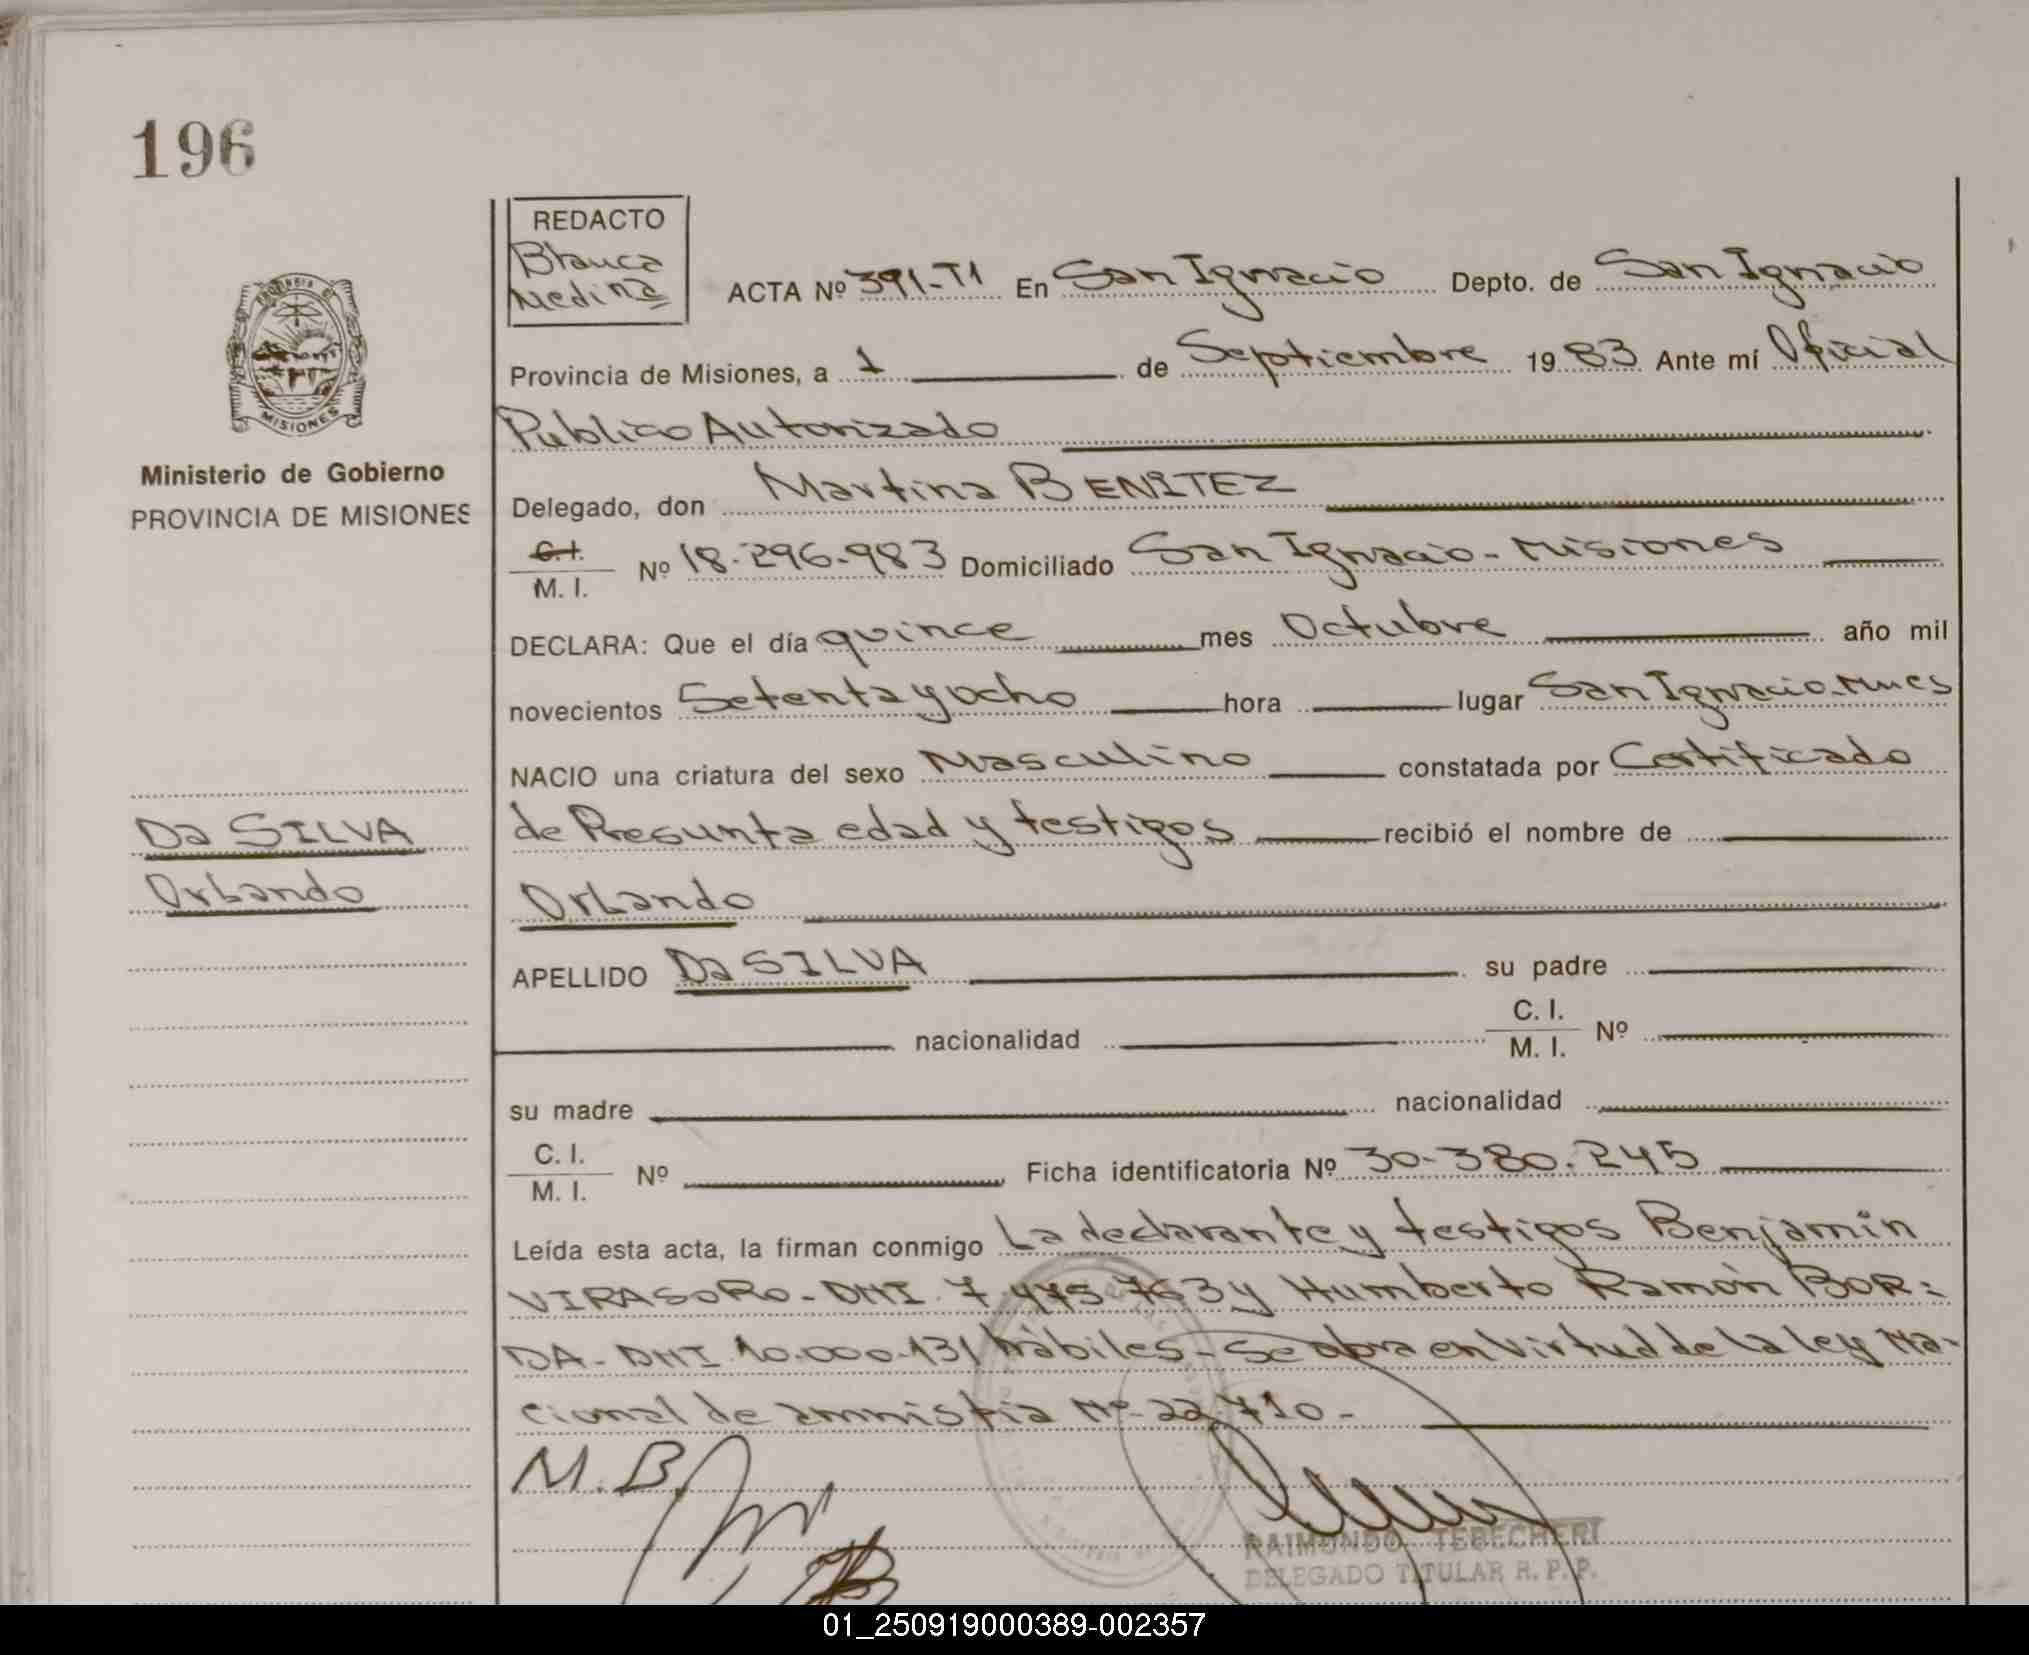 196
REDACTO
Blanca
Medina
ACTA Nº 391-T1 En San Ignacio Depto. de San Ignacio
Provincia de Misiones, a 1 de Septiembre 1983 Ante mí Oficial
Publico Autorizado
MISIONES
Ministerio de Gobierno
PROVINCIA DE MISIONES
Delegado, don Martina BENITEZ
C.I.
M. I. Nº 18.296.983 Domiciliado San Ignacio - Misiones
DECLARA: Que el día quince mes Octubre año mil
novecientos Setenta y ocho hora lugar San Ignacio. Mnes
NACIO una criatura del sexo Masculino constatada por Certificado
de Presunta edad y testigos recibió el nombre de
Da SILVA
Orlando
Orlando
APELLIDO Da SILVA su padre
nacionalidad C. I.
M. I. Nº
su madre nacionalidad
C. I.
M. I. Nº Ficha identificatoria Nº 30.380.245
Leída esta acta, la firman conmigo La declarante y testigos Benjamín
VIRASORO - DNI. 7.475.763 y Humberto Ramón BOR=
DA - DNI. 10.000.131 hábiles - Se abra en virtud de la ley Na-
cional de amnistía Nº 22.710 -
M. B.
RAIMUNDO TEBECHERI
DELEGADO TITULAR R. P. P.
01_250919000389-002357